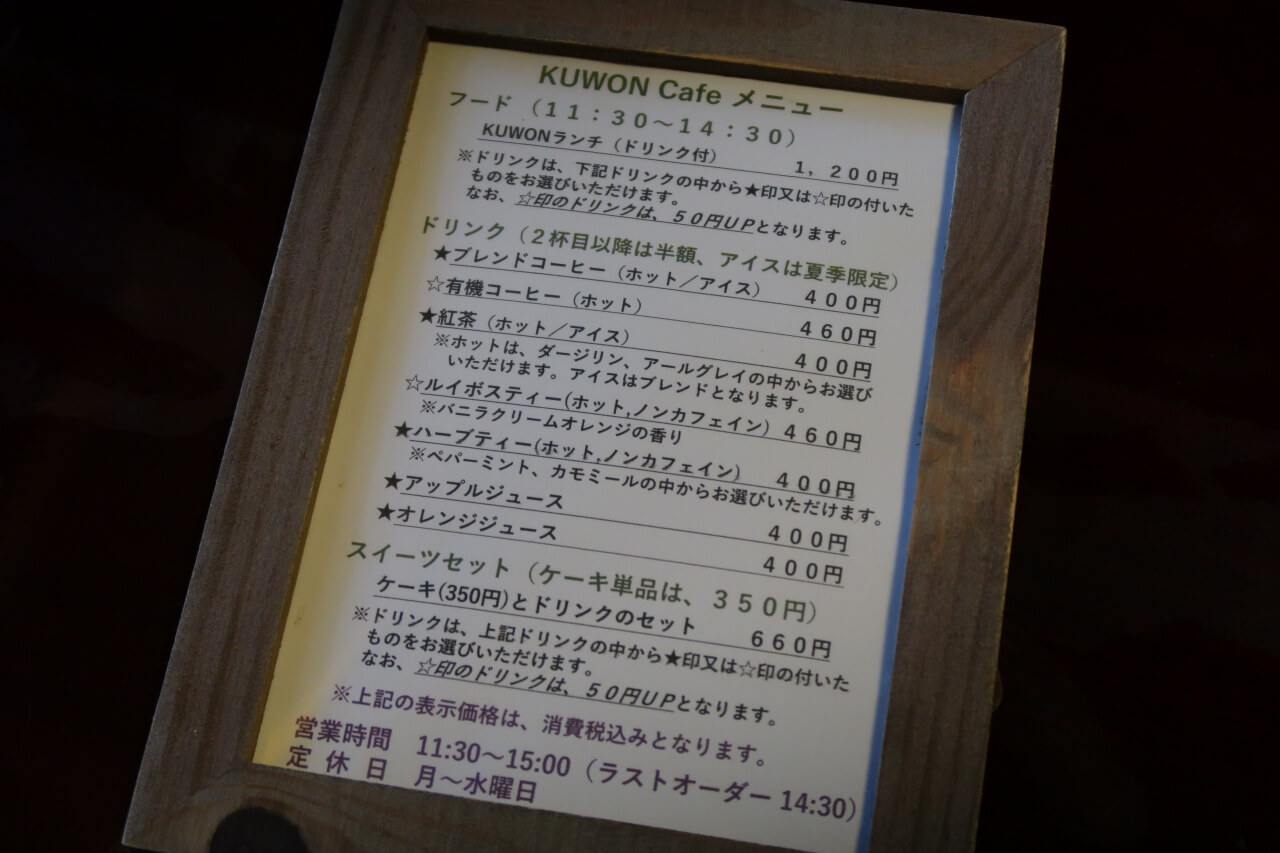 KUWON Cafe メニュー
フード（１１：３０～１４：３０）
KUWONランチ（ドリンク付） １，２００円
※ドリンクは、下記ドリンクの中から★印又は☆印の付いた
ものをお選びいただけます。
なお、☆印のドリンクは、５０円UPとなります。
ドリンク（２杯目以降は半額、アイスは夏季限定）
★ブレンドコーヒー（ホット／アイス） ４００円
☆有機コーヒー（ホット） ４６０円
★紅茶（ホット／アイス） ４００円
※ホットは、ダージリン、アールグレイの中からお選び
いただけます。アイスはブレンドとなります。
☆ルイボスティー(ホット,ノンカフェイン) ４６０円
※バニラクリームオレンジの香り
★ハーブティー(ホット,ノンカフェイン) ４００円
※ペパーミント、カモミールの中からお選びいただけます。
★アップルジュース ４００円
★オレンジジュース ４００円
スイーツセット（ケーキ単品は、３５０円）
ケーキ(350円)とドリンクのセット ６６０円
※ドリンクは、上記ドリンクの中から★印又は☆印の付いた
ものをお選びいただけます。
なお、☆印のドリンクは、５０円UPとなります。
※上記の表示価格は、消費税込みとなります。
営業時間 11:30～15:00（ラストオーダー 14:30）
定 休 日 月～水曜日